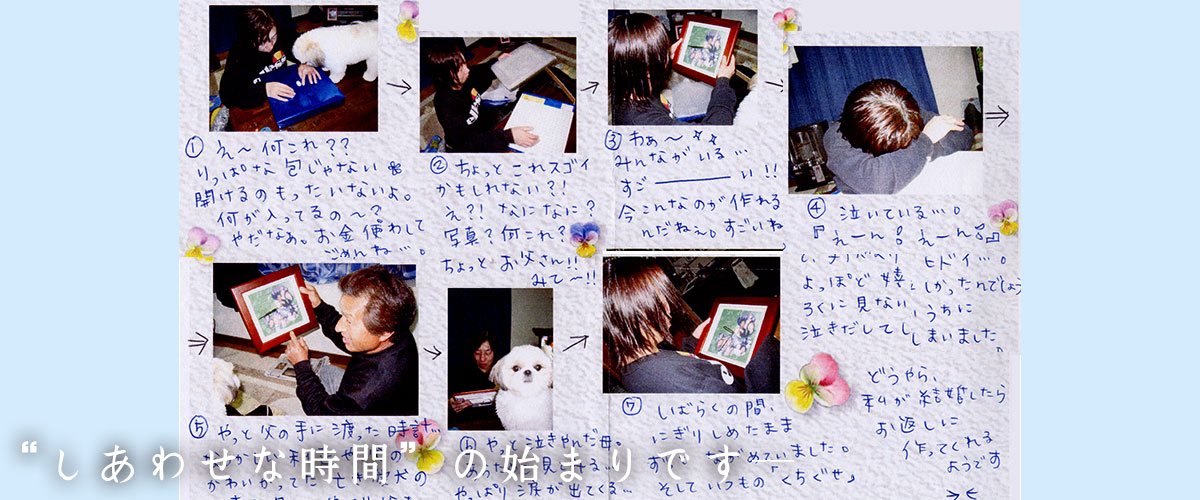 ① え～何これ??
りっぱな包じゃない
開けるのもったいないよ。
何が入ってるの～?
やだなぁ。お金使わして
ごめんね…。
② ちょっとこれスゴイ
かもしれない?!
え?! なになに?
写真? 何これ?
ちょっと お父さん!!
みて～!!
③ わぁ～
みんながいる…
すご―――い!!
今こんなのが作れる
んだねぇ。すごいね。
④ 泣いている…。
『えーん。えーん。』
ヒドイ…。
よっぽど嬉しかったんでしょう
ろくに見ないうちに
泣きだしてしまいました。
⑤ やっと父の手に渡った時計…
⑥ やっと泣きやんだ母。
やっぱり涙が出てくる…
⑦ しばらくの間、
にぎりしめたまま
ながめていました。
そしていつもの「くちぐせ」
どうやら、
私が結婚したら
お返しに
作ってくれる
ようです
“しあわせな時間”の始まりです―